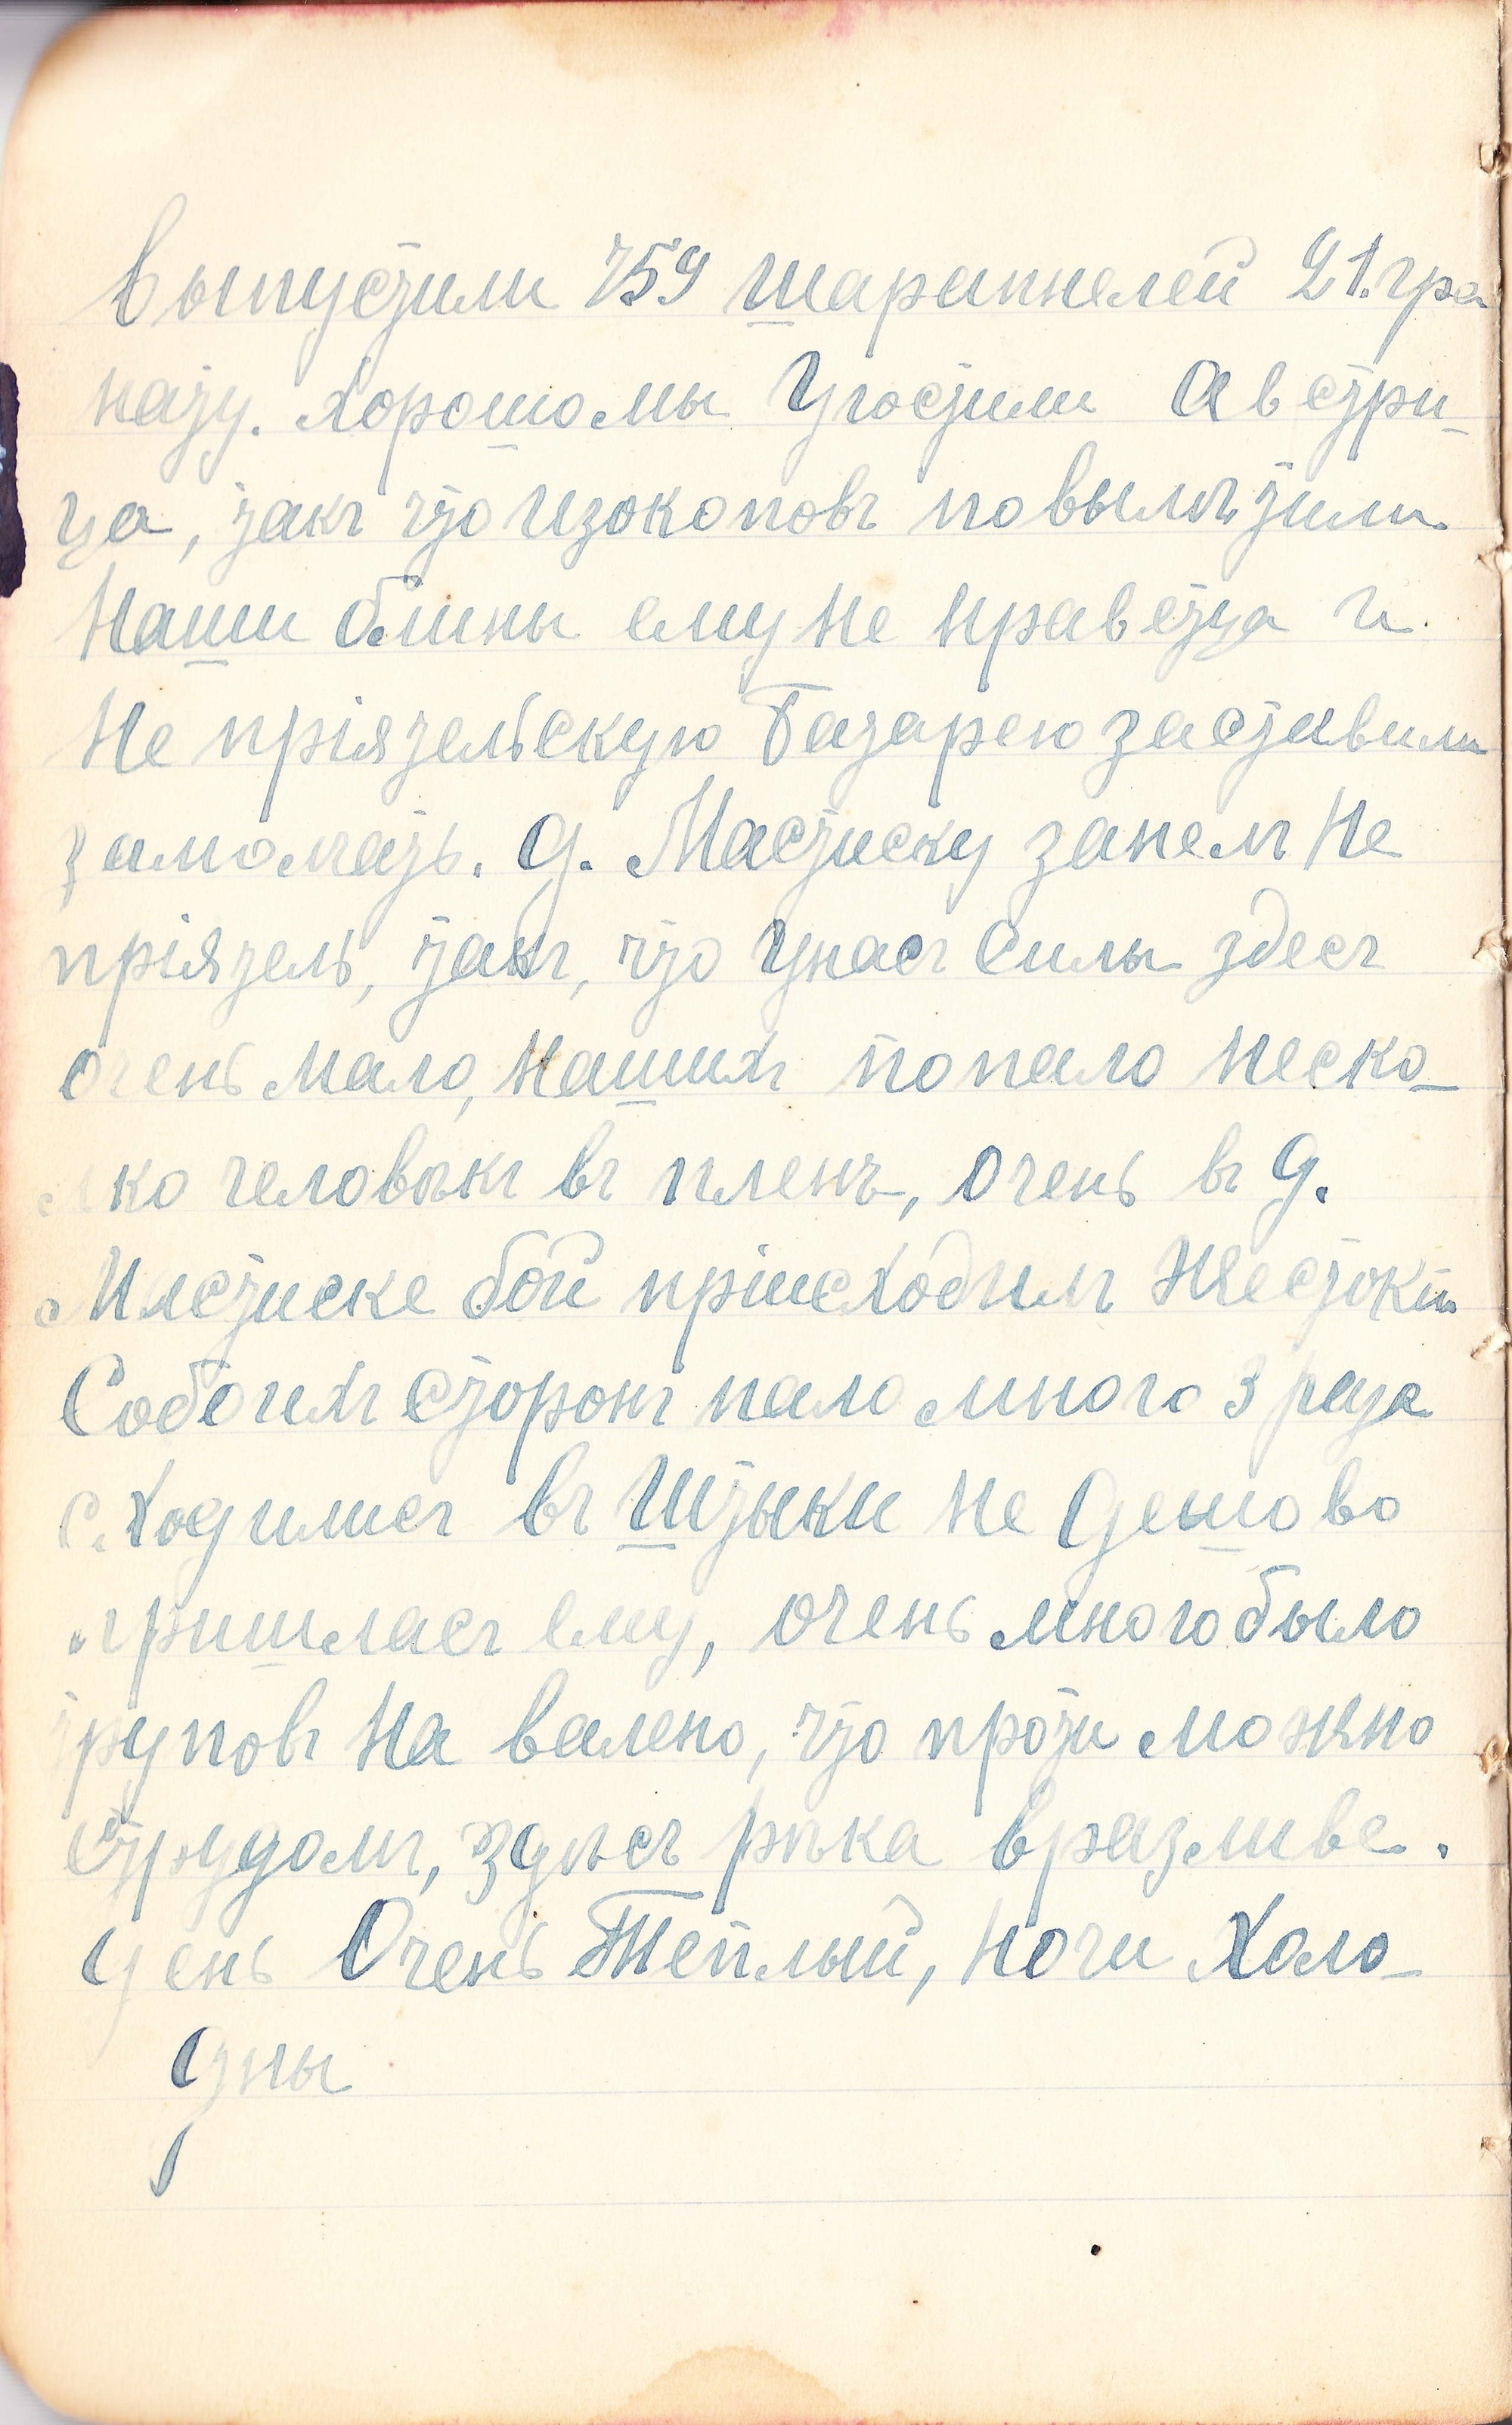 Выпустили 759 шарапнелей 21. гра
нату. Хорошо мы Угостили Австри-
ца, такъ что Изоконовъ повылѣзили
Наши блины ему не нравётца и
Не пріятельскую Батарею заставили
замолчать. д. Мастиску занелъ Не
пріятель, такъ, что Унасъ Силы здесъ
очень мало, нашихъ попало неско-
лко человѣкъ въ пленъ, очень въ д.
Мастиске бой пріисходилъ Жестокій
Собоихъ сторонъ пало много 3 раза
сходилисъ въ Штыки не дешово
пришласъ ему, очень много было
труповъ На валено, что проти можно
струдомъ, здѣсъ рѣка вразливе.
день Очень Теплый, ночи Холо-
дны